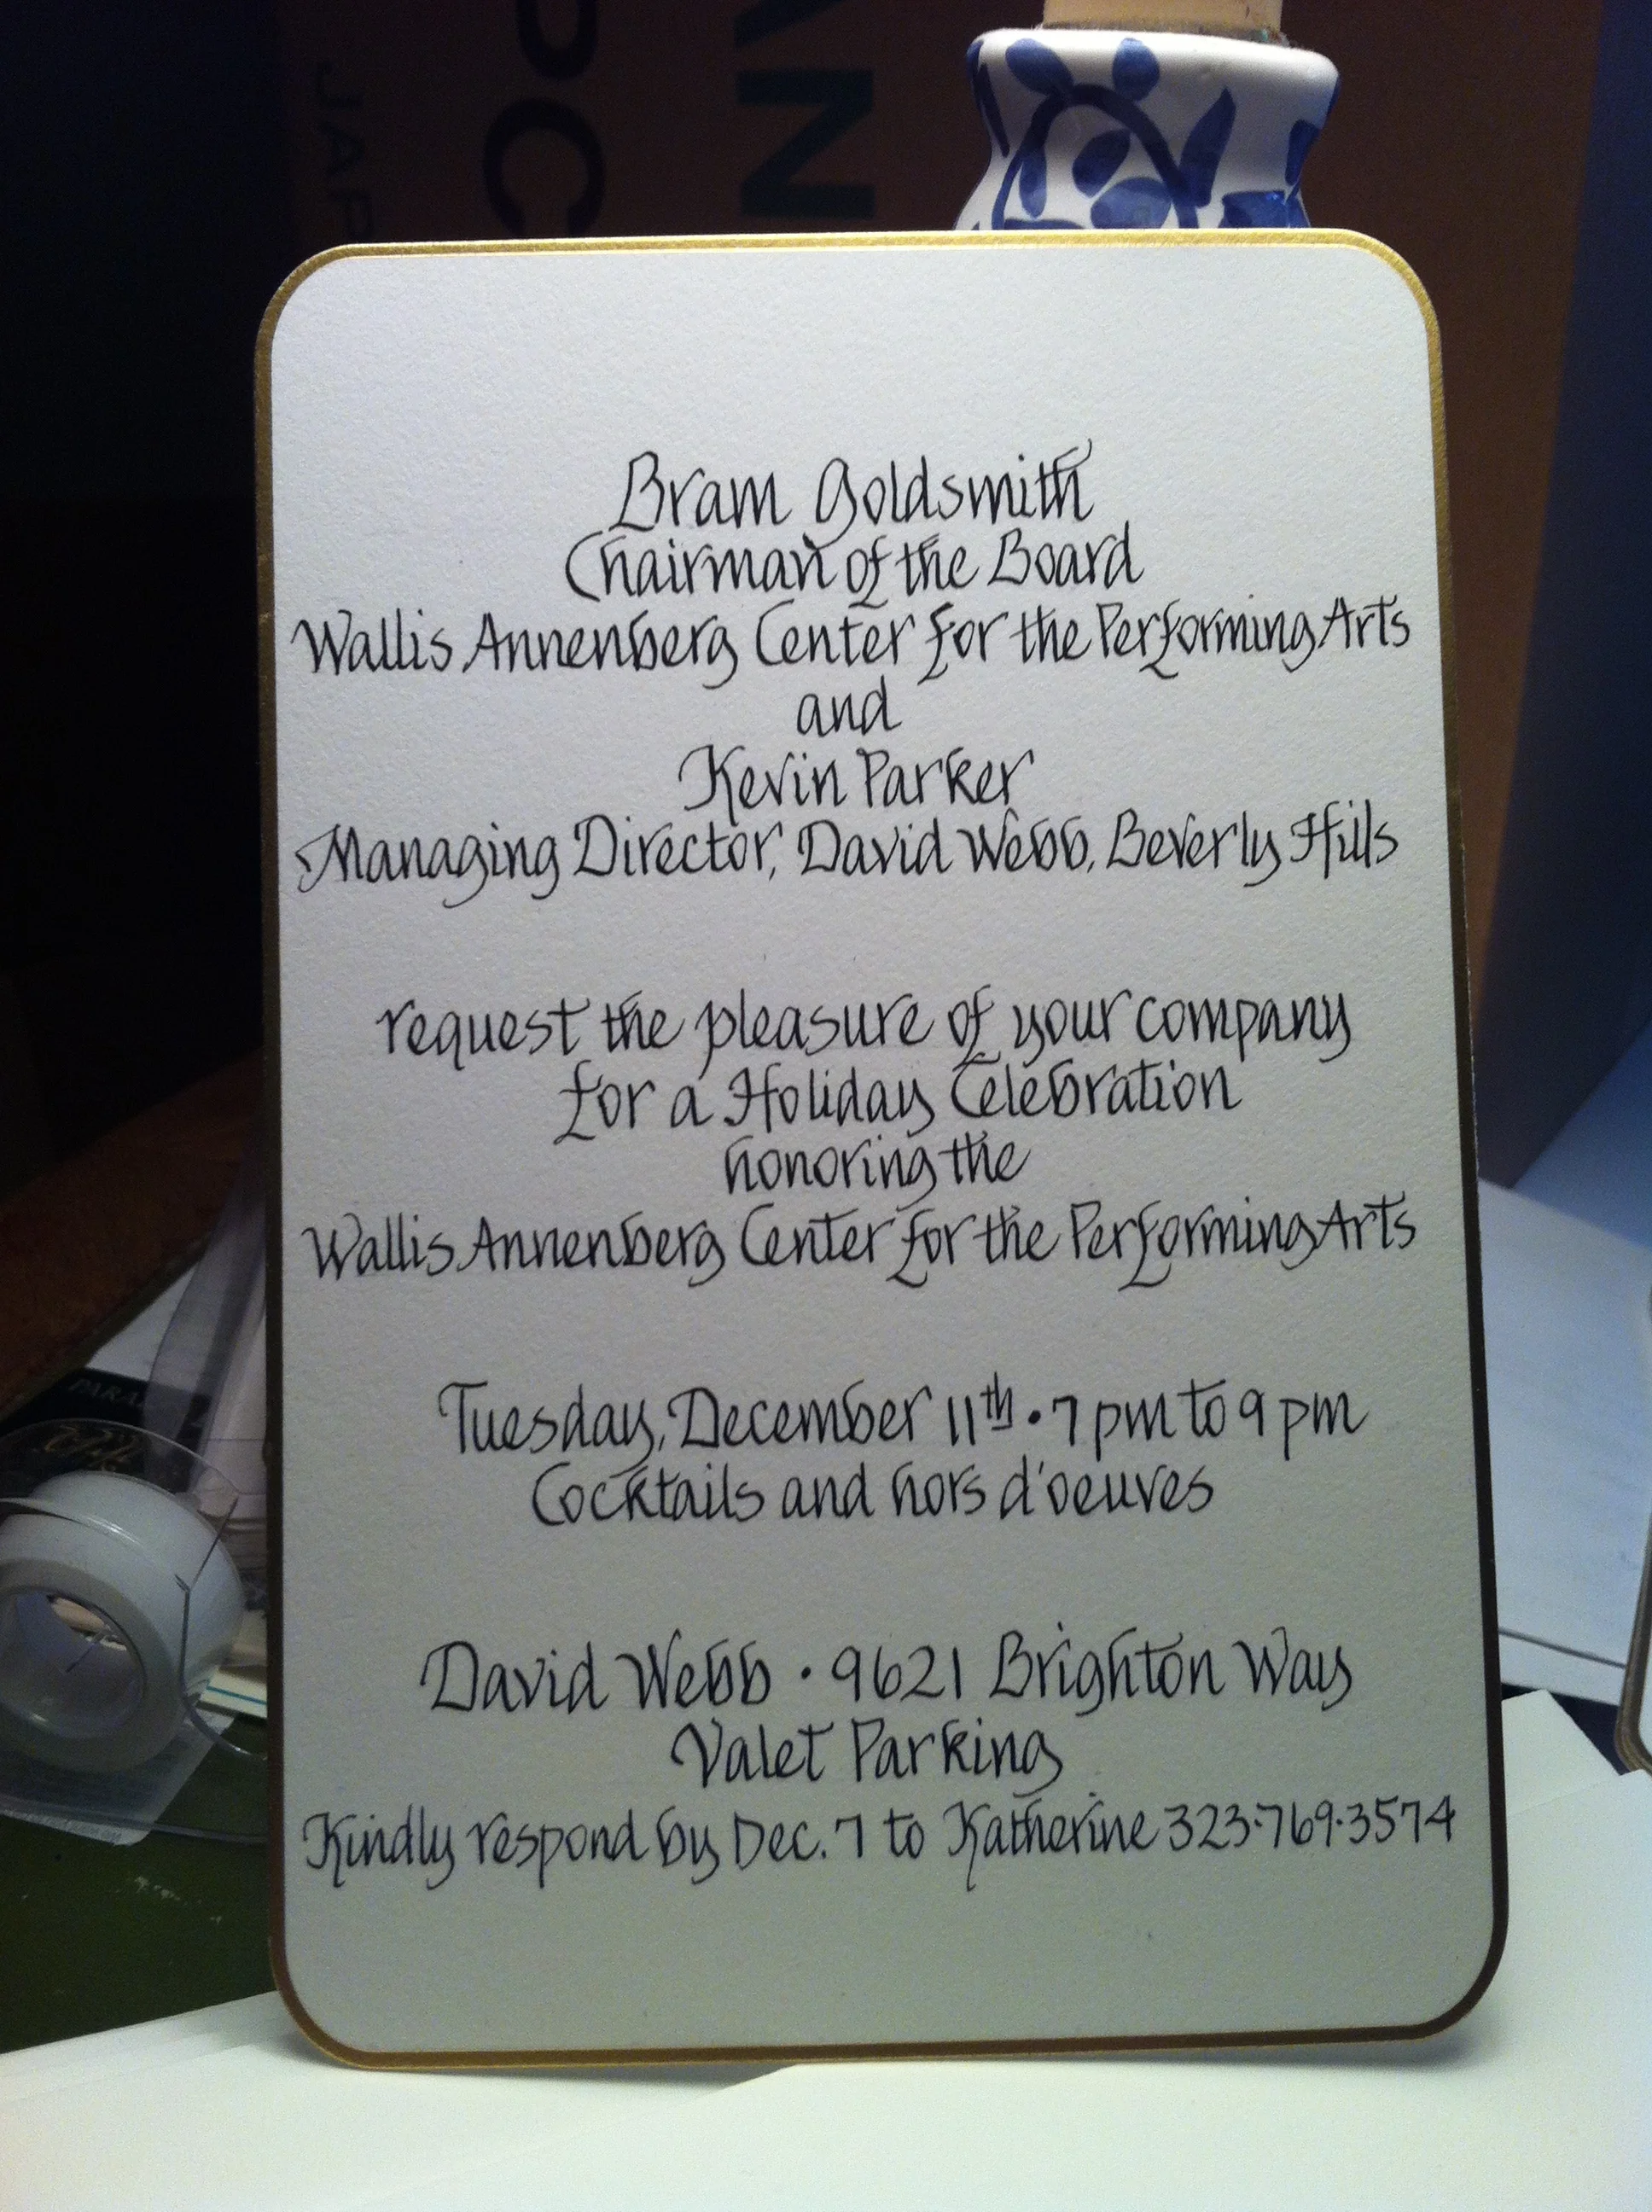 Bram Goldsmith
Chairman of the Board
Wallis Annenberg Center for the Performing Arts
and
Kevin Parker
Managing Director, David Webb, Beverly Hills
request the pleasure of your company
for a Holiday Celebration
honoring the
Wallis Annenberg Center for the Performing Arts
Tuesday, December 11th • 7 pm to 9 pm
Cocktails and hors d'oeuves
David Webb • 9621 Brighton Way
Valet Parking
Kindly respond by Dec. 7 to Katherine 323·769·3574